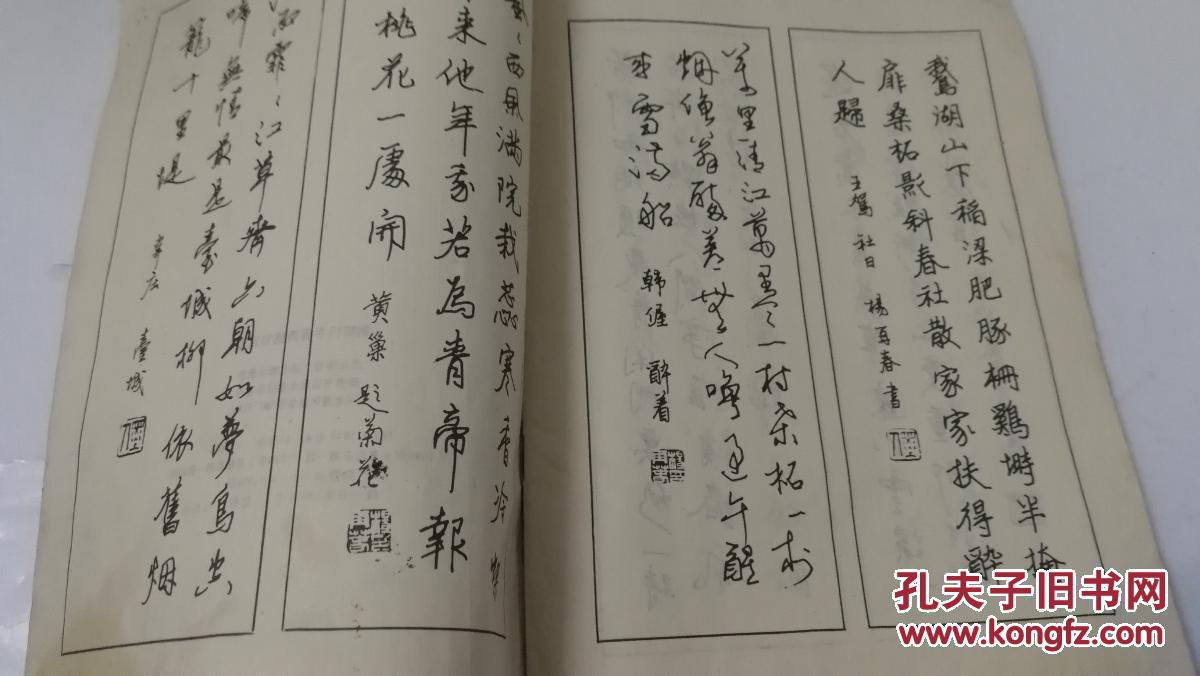 鹅湖山下稻粱肥豚栅鸡埘半掩
扉桑柘影斜春社散家家扶得醉
人归 王驾 社日 杨再春书
万里清江万里天一村桑柘一村
烟渔翁醉着无人唤过午醒
来雪满船 韩偓 醉着
飒西风满院栽蕊寒香冷蝶
来他年我若为青帝報
桃花一處開 黄巢 题菊花
雨霏霏江草齐六朝如梦鸟空
啼無情最是臺城柳依舊烟
籠十里堤 韦庄 臺城
孔夫子旧书网
www.kongfz.com